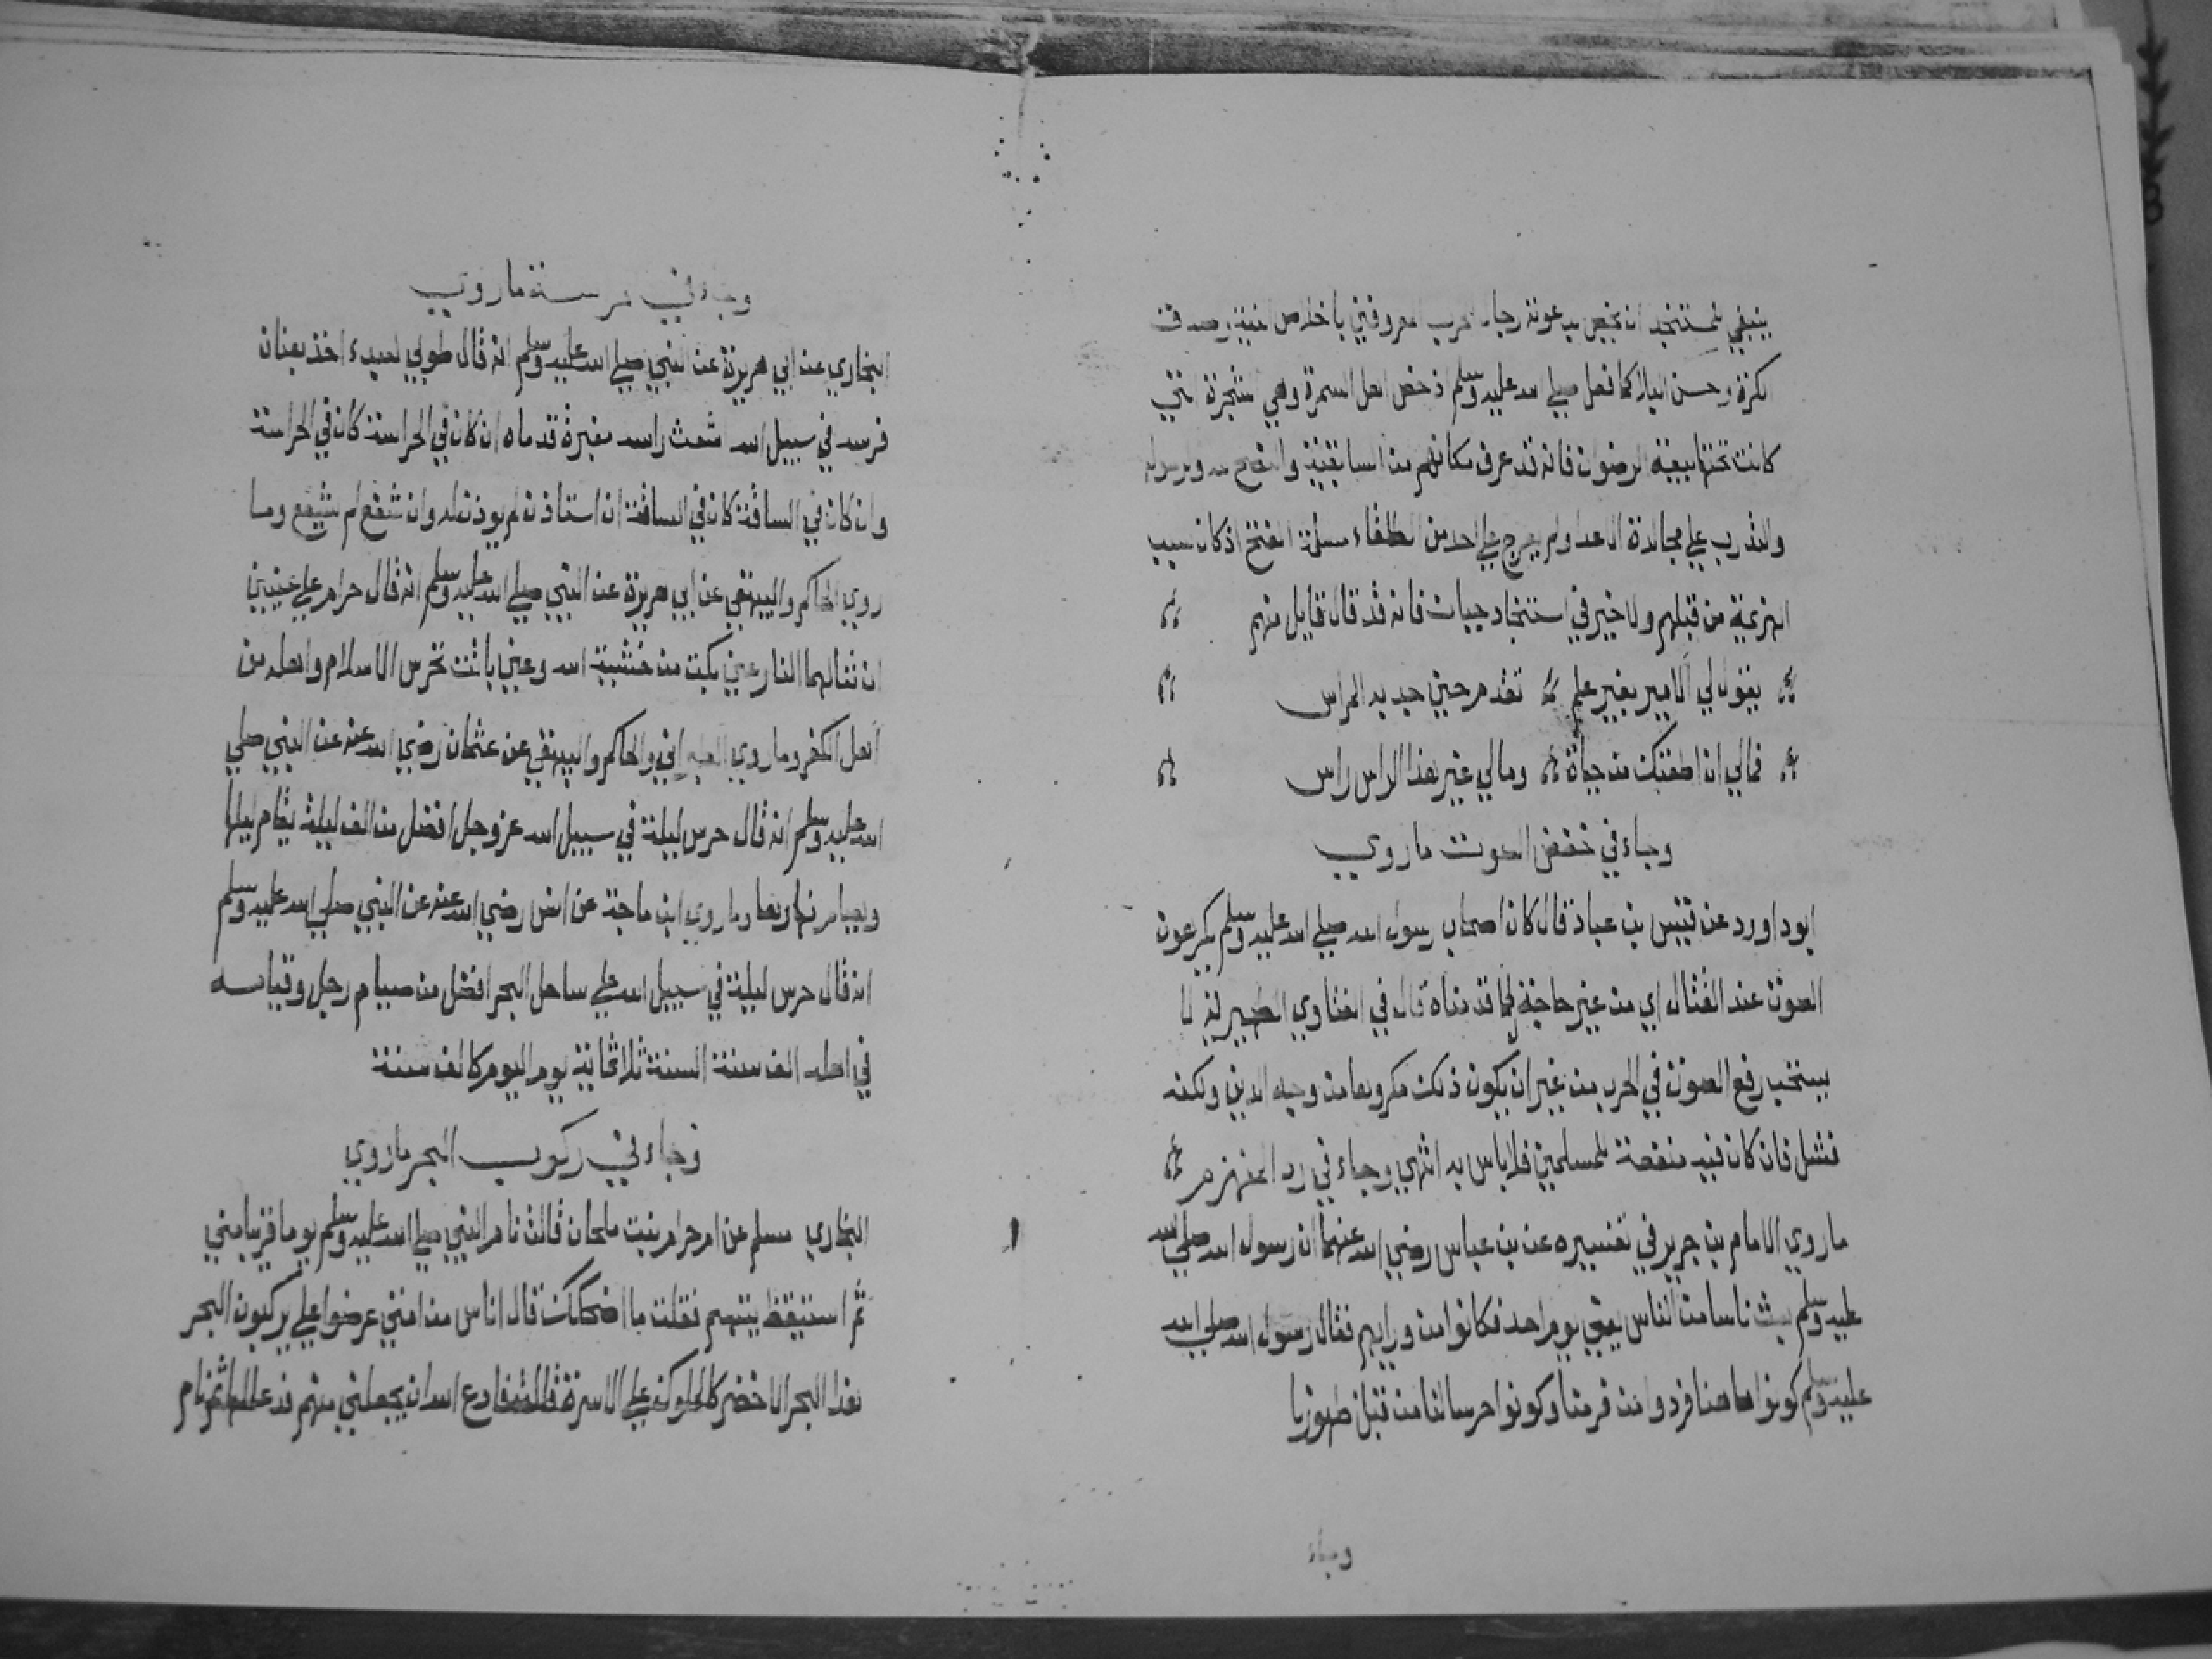 ينبغي للمستنجد ان يخص بدعوته رجال الحرب المعروفين باخلاص النية وصدق
الكرة وحسن البلا كما فعل صلي الله عليه وسلم اذ خص اهل السمرة وهي الشجرة التي
كانت تحتها بيعة الرضوان فانه قد عرف مكانهم من السابقية والنصح لله ورسوله
والتدرب علي مجالدة الاعدا ولم يعرج علي احد من الطلقاء مسلمة الفتح اذ كان سبب
الهزيمة من قبلهم ولا خير في استنجاد جبان فانه قد قال قايل منهم
يقول لي الامير بغير علم تقدم حين جد به المراس
فمالي ان اطعتك من حياة ومالي غير هذا الراس راس
وجاء في خفض الصوت ما روي
ابو داورد عن قيس بن عباد قال كان اصحاب رسول الله صلي الله عليه وسلم يكرهون
الصوت عند القتال اي من غير حاجة لما قدمناه قال في الفتاوي الظهيرية لا
يستحب رفع الصوت في الحرب من غير ان يكون ذلك مكروها من وجه الدين ولكنه
فشل فان كان فيه منفعة للمسلمين فلا باس به انتهي وجاء في رد المنهزم
ما روي الامام بن جرير في تفسيره عن بن عباس رضي الله عنهما ان رسول الله صلي الله
عليه وسلم بث ناسا من الناس يعني يوم احد فكانوا من ورايهم فقال رسول الله صلي الله
عليه وسلم كونوا هاهنا فردوا من فر منا وكونوا حرسا لنا من قبل ظهورنا
وجاء
وجاء في حرسته ما روي
البخاري عن ابي هريرة عن النبي صلي الله عليه وسلم انه قال طوبي لعبد اخذ بعنان
فرسه في سبيل الله شعث راسه مغبرة قدماه ان كان في الحراسة كان في الحراسة
وان كان في الساقة كان في الساقة ان استاذن لم يوذن له وان شفع لم يشفع وما
روي الحاكم والبيهقي عن ابي هريرة عن النبي صلي الله عليه وسلم انه قال حرام علي عينين
ان تنالهما النار عين بكت من خشية الله وعين باتت تحرس الاسلام واهله من
اهل الكفر وما روي الطبراني والحاكم والبيهقي عن عثمان رضي الله عنه عن النبي صلي
الله عليه وسلم انه قال حرس ليلة في سبيل الله عز وجل افضل من الف ليلة يقام ليلها
ويصام نهارها وما روي ابن ماجة عن انس رضي الله عنه عن النبي صلي الله عليه وسلم
انه قال حرس ليلة في سبيل الله علي ساحل البحر افضل من صيام رجل وقيامه
في اهله الف سنة السنة ثلاثماية يوم اليوم كالف سنة
وجاء في ركوب البحر ما روي
البخاري مسلم عن ام حرام بنت ملحان قالت نام النبي صلي الله عليه وسلم يوما قريبا مني
ثم استيقظ يتبسم فقلت ما اضحكك قال اناس من امتي عرضوا علي يركبون البحر
هذا البحر الاخضر كالملوك علي الاسرة قالت فادع الله ان يجعلني منهم فدعا لها ثم نام